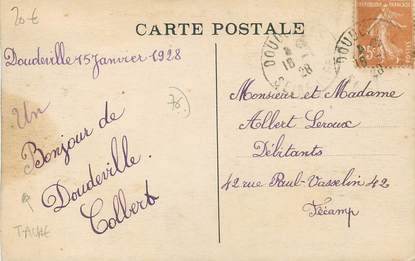 20 €
CARTE POSTALE
Doudeville 15 Janvier 1928
Un
Bonjour de
Doudeville.
Colbert
76.
TACHE
REPUBLIQUE FRANÇAISE
25
DOUD
16
28
DOUD
16
28
Monsieur et Madame
Albert Leroux
Débitants
42 rue Paul-Vasselin 42
Fécamp